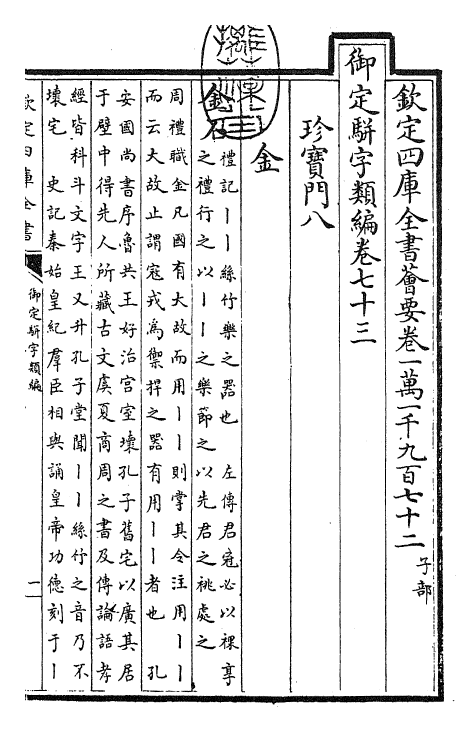 欽定四庫全書薈要卷一萬一千九百七十二 子部
御定駢字類編卷七十三
珍寶門八
金
金石
禮記丨丨絲竹樂之器也 左傳君冠必以祼享
之禮行之以丨丨之樂節之以先君之祧處之
周禮職金凡國有大故而用丨丨則掌其令注用丨丨
而云大故止謂寇戎爲禦捍之器有用丨丨者也 孔
安國尚書序魯共王好治宮室壞孔子舊宅以廣其居
于壁中得先人所藏古文虞夏商周之書及傳論語孝
經皆科斗文字王又升孔子堂聞丨丨絲竹之音乃不
壞宅 史記秦始皇紀羣臣相與誦皇帝功德刻于丨
欽定四庫全書
御定駢字類編
一